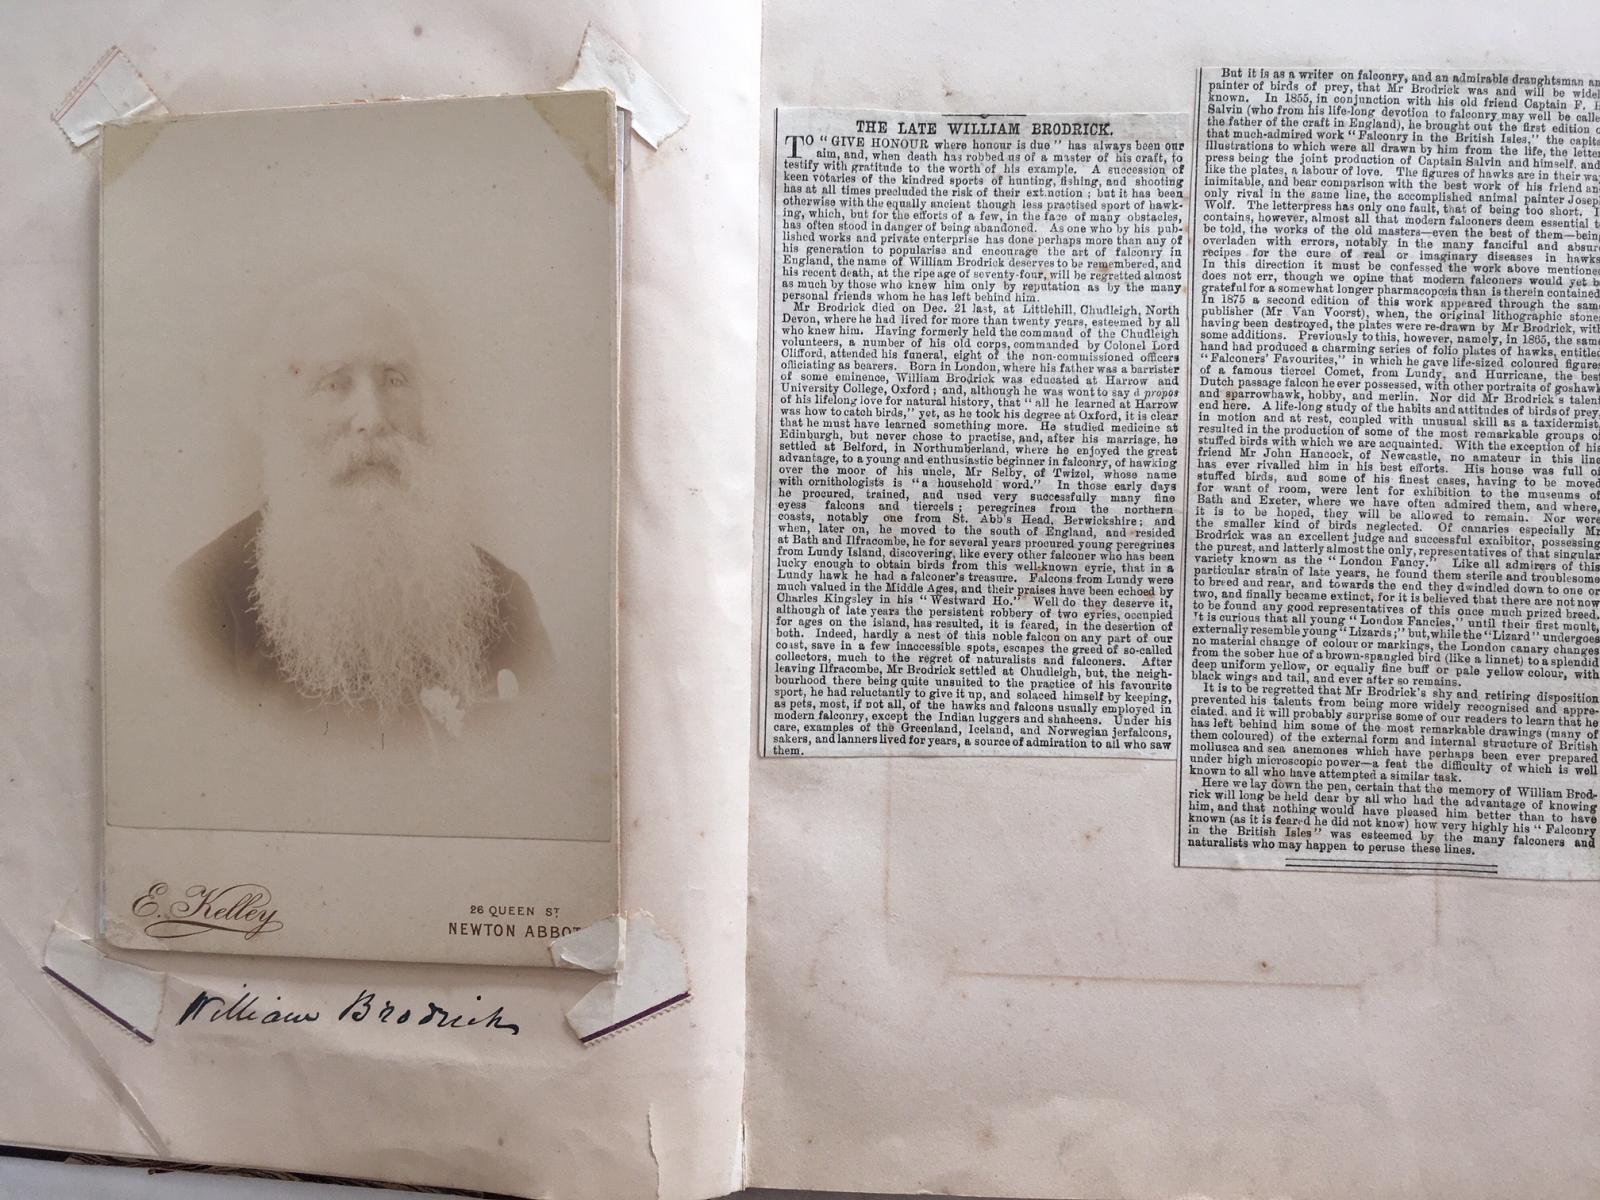 E. Kelley
26 QUEEN ST
NEWTON ABBOT
William Brodrick
THE LATE WILLIAM BRODRICK.
TO "GIVE HONOUR where honour is due" has always been our
aim, and, when death has robbed us of a master of his craft, to
testify with gratitude to the worth of his example. A succession of
keen votaries of the kindred sports of hunting, fishing, and shooting
has at all times precluded the risk of their extinction; but it has been
otherwise with the equally ancient though less practised sport of hawk-
ing, which, but for the efforts of a few, in the face of many obstacles,
has often stood in danger of being abandoned. As one who by his pub-
lished works and private enterprise has done perhaps more than any of
his generation to popularise and encourage the art of falconry in
England, the name of William Brodrick deserves to be remembered, and
his recent death, at the ripe age of seventy-four, will be regretted almost
as much by those who knew him only by reputation as by the many
personal friends whom he has left behind him.
Mr Brodrick died on Dec. 21 last, at Littlehill, Chudleigh, North
Devon, where he had lived for more than twenty years, esteemed by all
who knew him. Having formerly held the command of the Chudleigh
volunteers, a number of his old corps, commanded by Colonel Lord
Clifford, attended his funeral, eight of the non-commissioned officers
officiating as bearers. Born in London, where his father was a barrister
of some eminence, William Brodrick was educated at Harrow and
University College, Oxford; and, although he was wont to say à propos
of his lifelong love for natural history, that "all he learned at Harrow
was how to catch birds," yet, as he took his degree at Oxford, it is clear
that he must have learned something more. He studied medicine at
Edinburgh, but never chose to practise, and, after his marriage, he
settled at Belford, in Northumberland, where he enjoyed the great
advantage, to a young and enthusiastic beginner in falconry, of hawking
over the moor of his uncle, Mr Selby, of Twizel, whose name
with ornithologists is "a household word." In those early days
he procured, trained, and used very successfully many fine
eyess falcons and tiercels; peregrines from the northern
coasts, notably one from St. Abb's Head, Berwickshire; and
when, later on, he moved to the south of England, and resided
at Bath and Ilfracombe, he for several years procured young peregrines
from Lundy Island, discovering, like every other falconer who has been
lucky enough to obtain birds from this well-known eyrie, that in a
Lundy hawk he had a falconer's treasure. Falcons from Lundy were
much valued in the Middle Ages, and their praises have been echoed by
Charles Kingsley in his "Westward Ho." Well do they deserve it,
although of late years the persistent robbery of two eyries, occupied
for ages on the island, has resulted, it is feared, in the desertion of
both. Indeed, hardly a nest of this noble falcon on any part of our
coast, save in a few inaccessible spots, escapes the greed of so-called
collectors, much to the regret of naturalists and falconers. After
leaving Ilfracombe, Mr Brodrick settled at Chudleigh, but, the neigh-
bourhood there being quite unsuited to the practice of his favourite
sport, he had reluctantly to give it up, and solaced himself by keeping,
as pets, most, if not all, of the hawks and falcons usually employed in
modern falconry, except the Indian luggers and shaheens. Under his
care, examples of the Greenland, Iceland, and Norwegian jerfalcons,
sakers, and lanners lived for years, a source of admiration to all who saw
them.
But it is as a writer on falconry, and an admirable draughtsman an
painter of birds of prey, that Mr Brodrick was and will be widel
known. In 1855, in conjunction with his old friend Captain F. H
Salvin (who from his life-long devotion to falconry may well be calle
the father of the craft in England), he brought out the first edition o
that much-admired work "Falconry in the British Isles," the capita
illustrations to which were all drawn by him from the life, the letter
press being the joint production of Captain Salvin and himself, and
like the plates, a labour of love. The figures of hawks are in their wa
inimitable, and bear comparison with the best work of his friend an
only rival in the same line, the accomplished animal painter Josep
Wolf. The letterpress has only one fault, that of being too short. I
contains, however, almost all that modern falconers deem essential t
be told, the works of the old masters—even the best of them—bein
overladen with errors, notably in the many fanciful and absur
recipes for the cure of real or imaginary diseases in hawks
In this direction it must be confessed the work above mentione
does not err, though we opine that modern falconers would yet b
grateful for a somewhat longer pharmacopœia than is therein contained
In 1875 a second edition of this work appeared through the sam
publisher (Mr Van Voorst), when, the original lithographic stone
having been destroyed, the plates were re-drawn by Mr Brodrick, with
some additions. Previously to this, however, namely, in 1865, the same
hand had produced a charming series of folio plates of hawks, entitled
"Falconers' Favourites," in which he gave life-sized coloured figures
of a famous tiercel Comet, from Lundy, and Hurricane, the best
Dutch passage falcon he ever possessed, with other portraits of goshawk
and sparrowhawk, hobby, and merlin. Nor did Mr Brodrick's talent
end here. A life-long study of the habits and attitudes of birds of prey,
in motion and at rest, coupled with unusual skill as a taxidermist,
resulted in the production of some of the most remarkable groups of
stuffed birds with which we are acquainted. With the exception of his
friend Mr John Hancock, of Newcastle, no amateur in this line
has ever rivalled him in his best efforts. His house was full of
stuffed birds, and some of his finest cases, having to be moved
for want of room, were lent for exhibition to the museums of
Bath and Exeter, where we have often admired them, and where,
it is to be hoped, they will be allowed to remain. Nor were
the smaller kind of birds neglected. Of canaries especially Mr
Brodrick was an excellent judge and successful exhibitor, possessing
the purest, and latterly almost the only, representatives of that singular
variety known as the "London Fancy." Like all admirers of this
particular strain of late years, he found them sterile and troublesome
to breed and rear, and towards the end they dwindled down to one or
two, and finally became extinct, for it is believed that there are not now
to be found any good representatives of this once much prized breed.
't is curious that all young "London Fancies," until their first moult,
externally resemble young "Lizards;" but, while the "Lizard" undergoes
no material change of colour or markings, the London canary changes
from the sober hue of a brown-spangled bird (like a linnet) to a splendid
deep uniform yellow, or equally fine buff or pale yellow colour, with
black wings and tail, and ever after so remains.
It is to be regretted that Mr Brodrick's shy and retiring disposition
prevented his talents from being more widely recognised and appre-
ciated, and it will probably surprise some of our readers to learn that he
has left behind him some of the most remarkable drawings (many of
them coloured) of the external form and internal structure of British
mollusca and sea anemones which have perhaps been ever prepared
under high microscopic power—a feat the difficulty of which is well
known to all who have attempted a similar task.
Here we lay down the pen, certain that the memory of William Brod-
rick will long be held dear by all who had the advantage of knowing
him, and that nothing would have pleased him better than to have
known (as it is feared he did not know) how very highly his "Falconry
in the British Isles" was esteemed by the many falconers and
naturalists who may happen to peruse these lines.